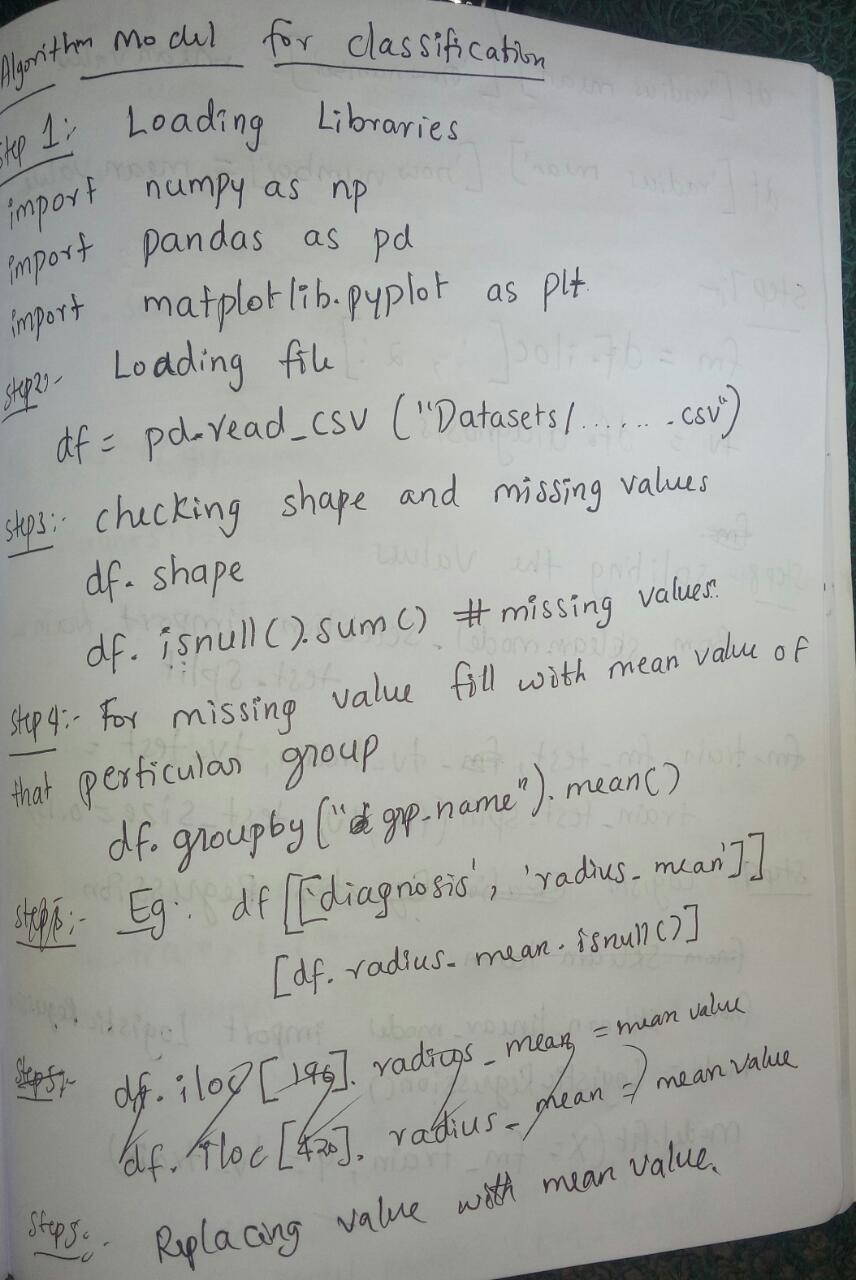 Algorithm Model for classification
Step 1:- Loading Libraries
import numpy as np
import pandas as pd
import matplotlib.pyplot as plt.
Step2:- Loading file
df = pd.read_csv ("Datasets/........csv")
Step3:- checking shape and missing values
df. shape
df. isnull().sum() # missing values.
Step 4:- For missing value fill with mean value of
that perticular group
df. groupby ("grp-name"). mean()
Step5:- Eg:. df [['diagnosis', 'radius_mean']]
[df. radius_mean. isnull()]
Step5:- df. iloc [196]. radius_mean = mean value
df. iloc [420]. radius_mean = mean value
Step5:. Replacing value with mean value.